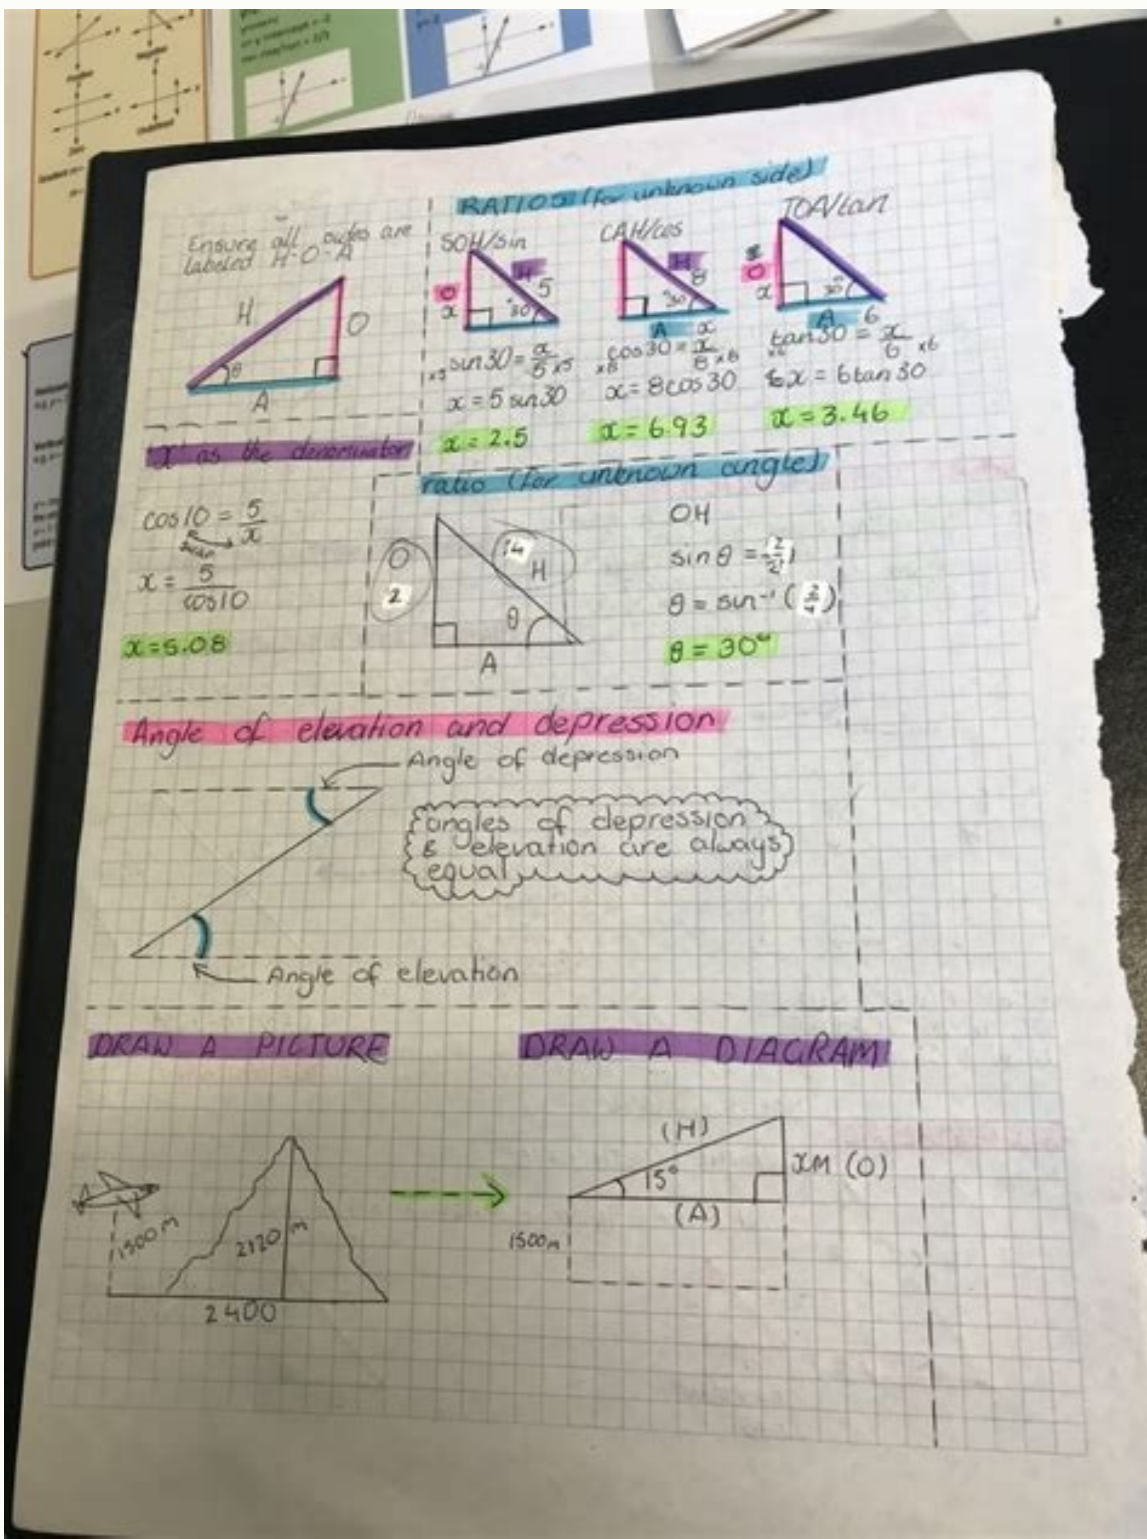 Ensure all sides are
labeled H-O-A
H
O
θ
A
RATIOS (for unknown side)
SOH/sin
O
x
H 5
30°
×5 sin30 = x/5 ×5
x = 5 sin30
x = 2.5
CAH/cos
H
8
30°
A x
×8 cos30 = x/8 ×8
x = 8cos30
x = 6.93
TOA/tan
O
x
30°
A 6
×6 tan30 = x/6 ×6
x = 6tan30
x = 3.46
'x' as the denominator
cos10 = 5/x
x = 5/cos10
x = 5.08
ratio (for unknown angle)
O
2
H
θ
A
OH
sin θ =
θ = sin⁻¹
θ = 30°
Angle of elevation and depression
Angle of depression
angles of depression
& elevation are always
equal
Angle of elevation
DRAW A PICTURE
1500m
2120 m
2400
DRAW A DIAGRAM
(H)
15°
xM (O)
(A)
1500m